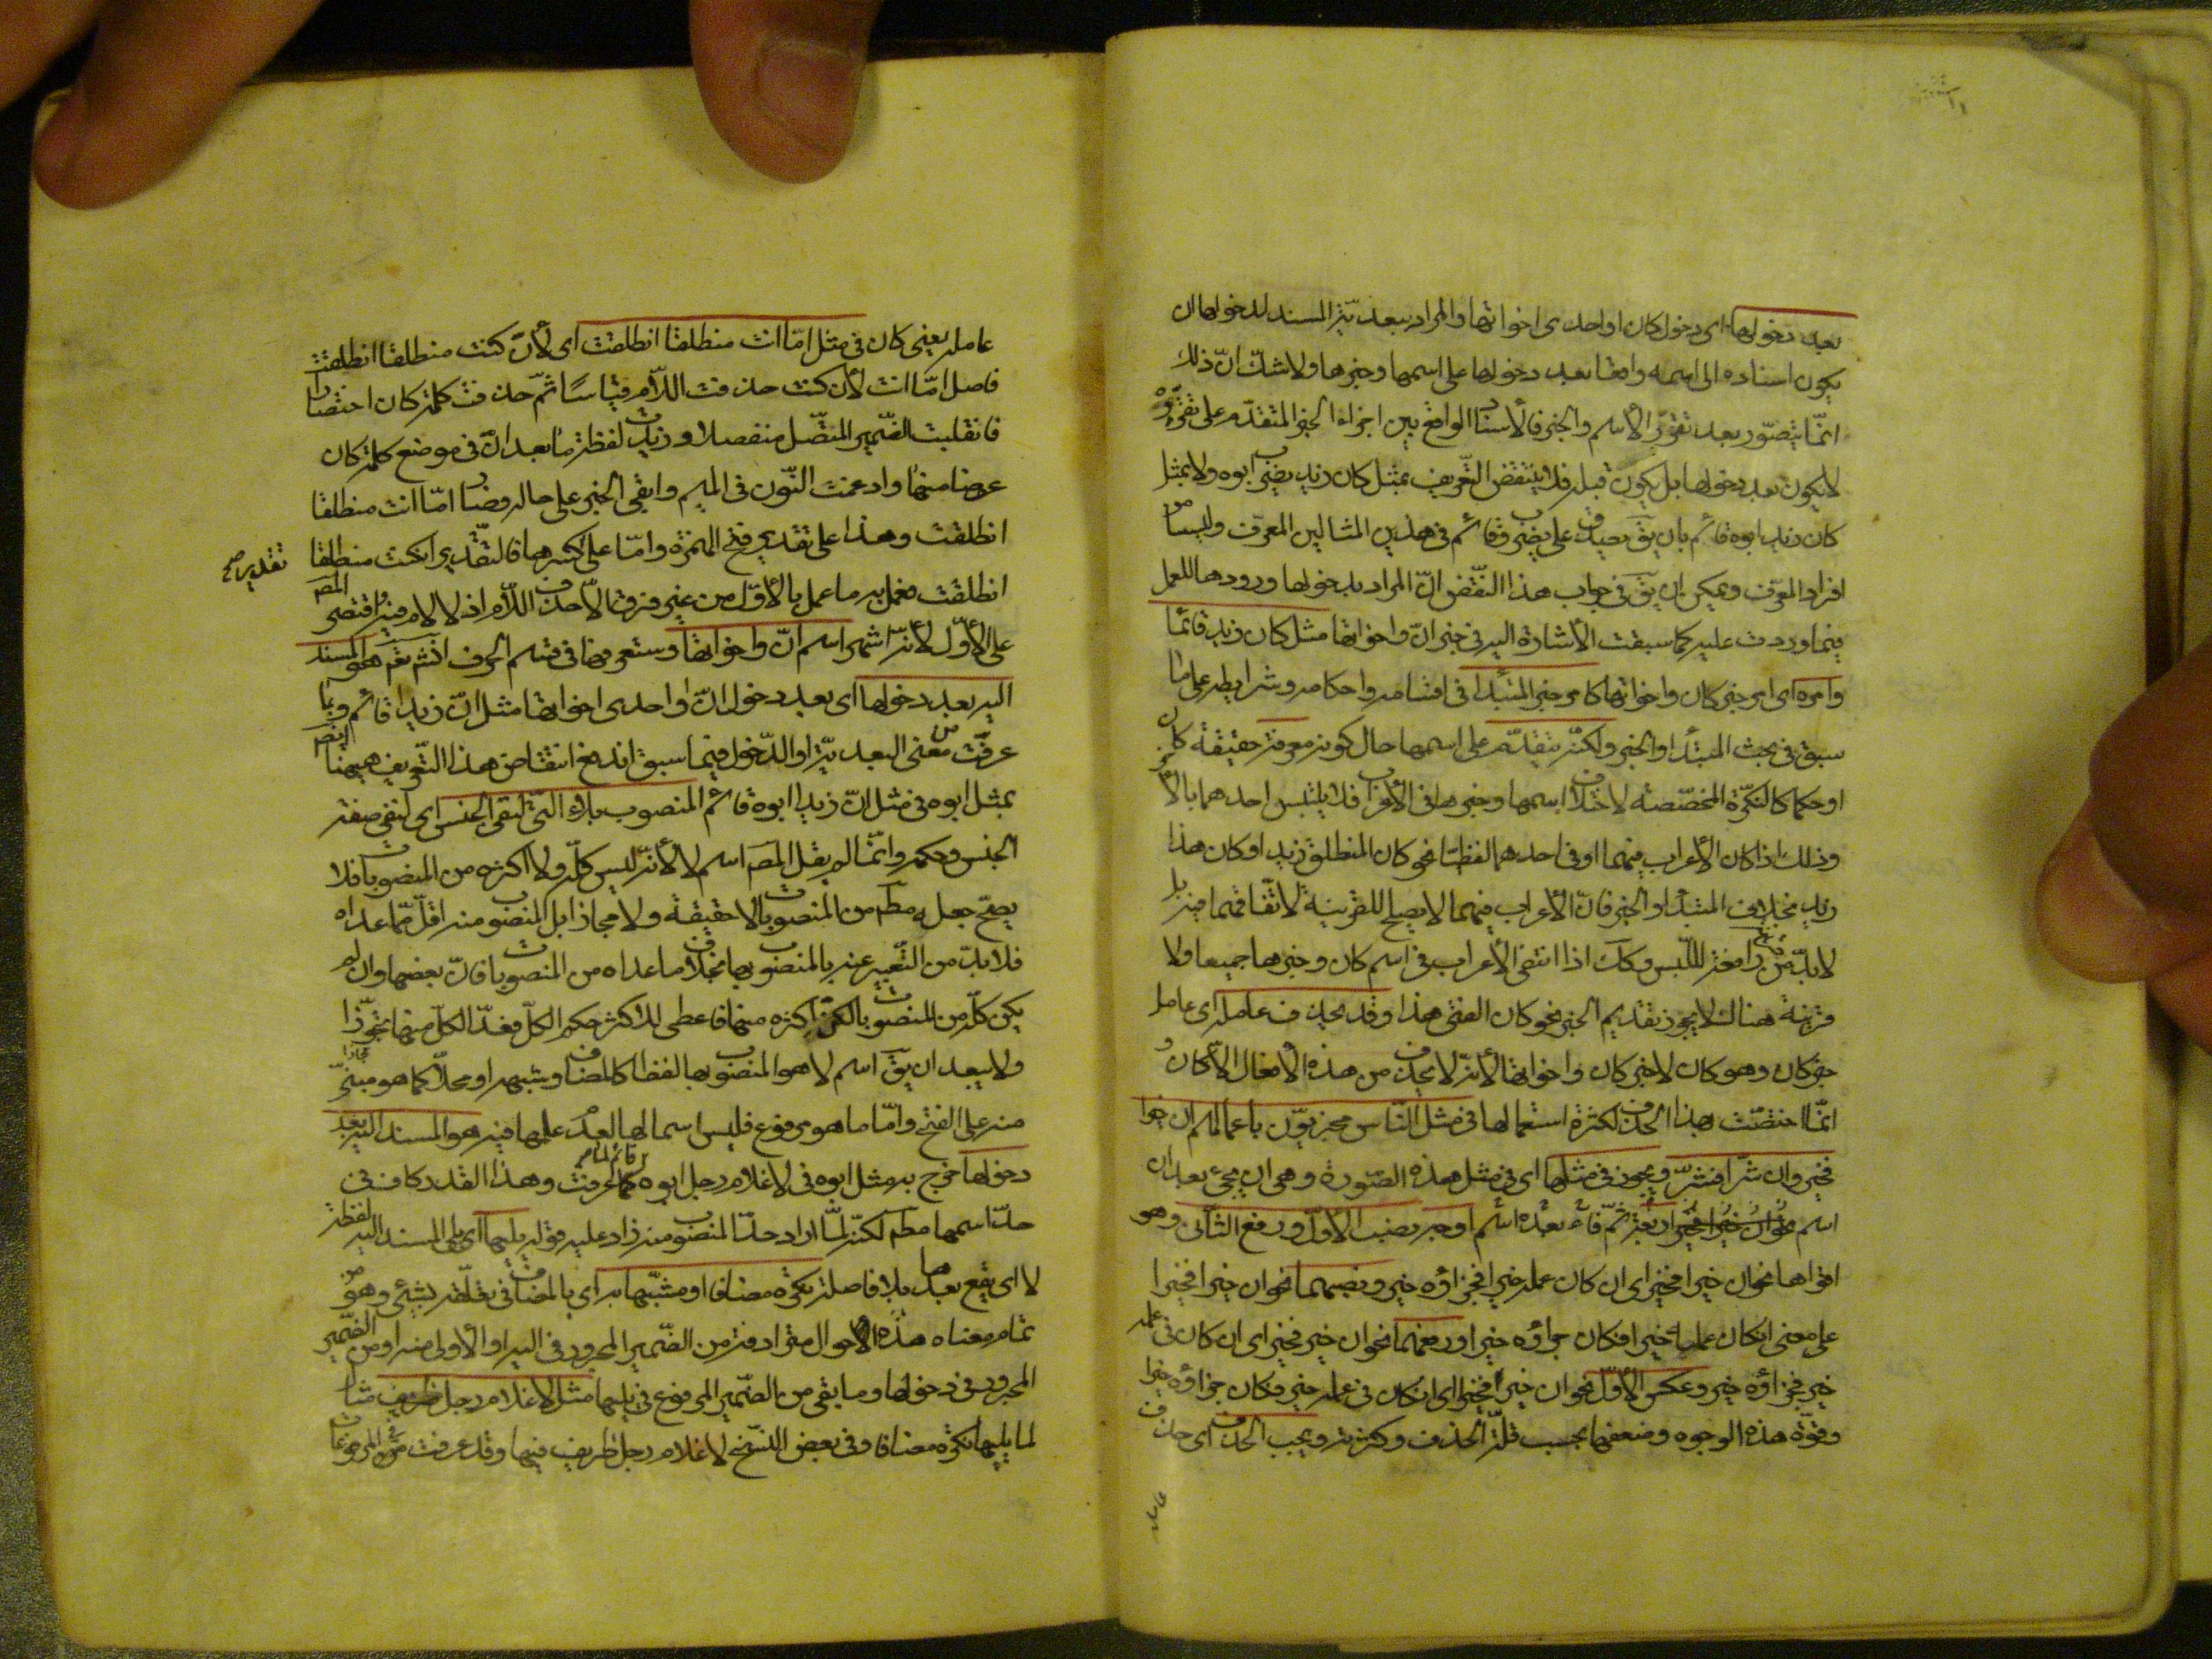 بعد دخولها اى دخول كان او احدى اخواتها والمراد ببعديّة المسند لدخولها ان
يكون اسناده الى اسمه واقعا بعد دخولها على اسمها وخبرها ولا شك انّ ذلك
انّما يتصوّر بعد تقرّر الاسم والخبر فالأسناد الواقع بين اجزاء الخبر المتقدّم على تقرّره
لا يكون بعد دخولها بل يكون قبله فلا ينتقض التّعريف بمثل كان زيد يضرب ابوه ولا بمثل
كان زيد ابوه قائم بان يقَ يصدق على يضرب وقائم فى هذين المثالين المعرّف وليسا من
افراد المعرّف ويمكن ان يقَ فى جواب هذا النّقض انّ المراد بدخولها ورودها للعمل
فيما وردت عليه كما سبقت الأشارة اليه فى خبر انّ واخواتها مثل كان زيد قائما
وامره اى امر خبر كان واخواتها كامر خبر المبتدأ فى اقسامه واحكامه وشرايطه على ما
سبق فى بحث المبتدأ والخبر ولكنّه يتقدّم على اسمها حال كونه معرفة حقيقة كان
او حكما كالنكرة المخصّصة لاختلاف اسمها وخبرها فى الأعراب فلا يلتبس احدهما بالآخر
وذلك اذا كان الأعراب فيهما او فى احدهما لفظيّا نحو كان المنطلق زيد او كان هذا
زيد بخلاف المبتدأ والخبر فانّ الأعراب فيهما لا يصلح للقرينة لاتّفاقهما فيه بل
لا بدّ من قرينة رافعة للّبس وكك اذا انتفى الأعراب فى اسم كان وخبرها جميعا ولا
قرينة هناك لا يجوز تقديم الخبر نحو كان الفتى هذا وقد يحذف عامله اى عامل
خبر كان وهو كان لا خبر كان واخواتها لأنّه لا يحذف من هذه الأفعال الّا كان و
انّما اختصّت بهذا الحذف لكثرة استعمالها فى مثل النّاس مجزيّون باعمالهم ان خيرا
فخير وان شرّا فشرّ ويجوز فى مثلها اى فى مثل هذه الصّورة وهى ان يجىء بعد ان
اسم ثمّ فاء بعده اسم اوجه نصب الأوّل ورفع الثّانى وهو
اقواها نحو ان خيرا فخير اى ان كان عمله خيرا فجزاؤه خير ونصبهما نحو ان خيرا فخيرا
على معنى ان كان عمله خيرا فكان جزاؤه خيرا ورفعهما نحو ان خير فخير اى ان كان فى عمله
خير فجزاؤه خير وعكس الأوّل نحو ان خير فخيرا اى ان كان فى عمله خير فكان جزاؤه خيرا
وقوّة هذه الوجوه وضعفها بحسب قلّة الحذف وكثرته ويجب الحذف اى حذف
عامله
عامله يعنى كان فى مثل امّا انت منطلقا انطلقت اى لأن كنت منطلقا انطلقت
فاصل امّا انت لأن كنت حذفت اللّام قياسًا ثمّ حذفت كلمة كان اختصارا
فانقلبت الضّمير المتّصل منفصلا وزيدت لفظة ما بعد ان فى موضع كلمة كان
عوضا منها وادغمت النّون فى الميم وابقى الخبر على حاله فصار امّا انت منطلقا
انطلقت وهذا على تقدير فتح الهمزة وامّا على كسرها فالتقدير ان كنت منطلقا
تقديره صح
انطلقت فعمل به ما عمل بالأوّل من غير فرق الّا حذف اللّام اذ لا لام فيه واقتصر المصَ
على الأوّل لأنّه اشهر اسم انّ واخواتها وستعرفها فى قسم الحرف انشَ تعَ هو المسند
اليه بعد دخولها اى بعد دخول انّ او احدى اخواتها مثل انّ زيدا قائم وبما
عرفت من معنى البعديّة او الدّخول فيما سبق اندفع انتقاض هذا التّعريف ههنا ايضَ
بمثل ابوه فى مثل انّ زيدا ابوه قائم المنصوب بلاء الّتى لنفى الجنس اى لنفى صفة
الجنس وحكمه وانّما لم يقل المصَ اسم لا لأنّه ليس كلّه ولا اكثره من المنصوبات فلا
يصحّ جعله مطَ من المنصوبات لا حقيقة ولا مجازا بل المنصوب منه اقلّ ممّا عداه
فلا بدّ من التّعبير عنه بالمنصوب بها بخلاف ما عداه من المنصوبات فانّ بعضها وان لم
يكن كلّه من المنصوبات لكنّ اكثره منها فاعطى للأكثر حكم الكلّ فعدّ الكلّ منها تجوّزا
ولا يبعد ان يقَ اسم لا هو المنصوب بها لفظا كالمضاف وشبهه او محلّا كما هو مبنىّ
منه على الفتح وامّا ما هو مرفوع فليس اسما لها لعدم عملها فيه هو المسند اليه بعد
دخولها خرج به مثل ابوه فى لا غلام رجل ابوه قائم لما عرفت وهذا القدر كاف فى
حدّ اسمها مطَ لكنّه لمّا اراد حدّ المنصوب منه زاد عليه قوله يليها اى يلى المسند اليه لفظة
لا اى يقع بعدها بلا فاصلة نكرة مضافا او مشبّها به اى بالمضاف فى تعلّقه بشىء وهو من
تمام معناه هذه الاحوال مترادفة من الضّمير المجرور فى اليه او الأولى منه او من الضّمير
المجرور فى دخولها وما بقى من الضّمير المرفوع فى يليها مثل لا غلام رجل ظريف مثال
لما يليها نكرة مضافا وفى بعض النّسخ لا غلام رجل ظريف فيها وقد عرفت فى المرفوعات